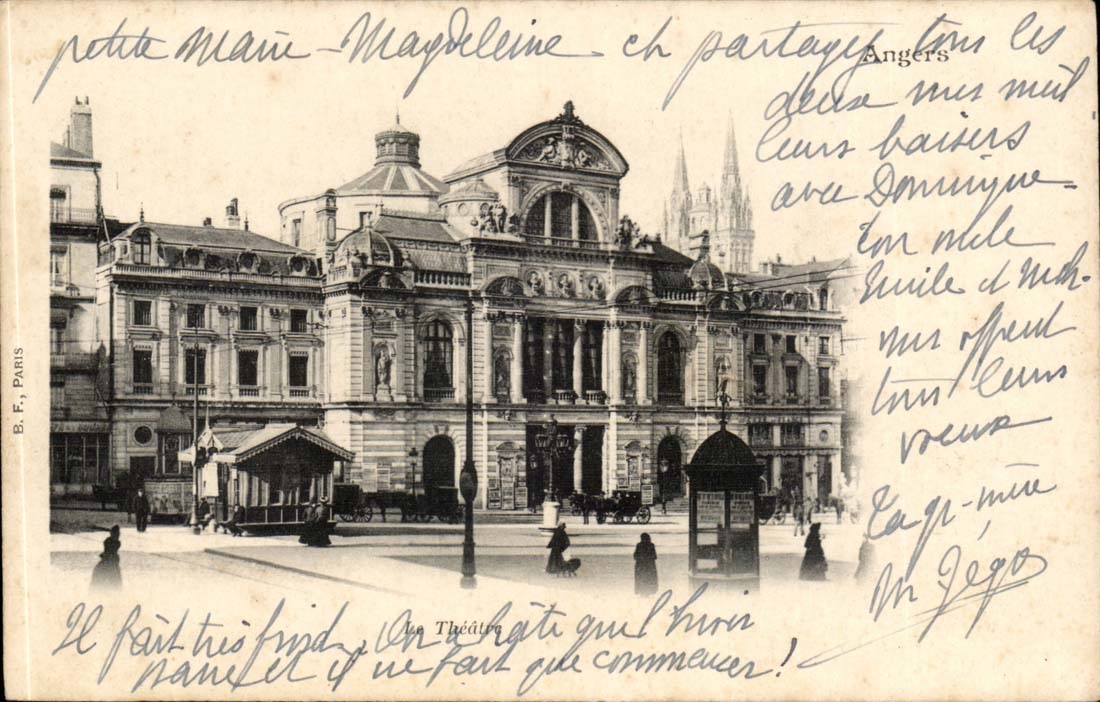 petite Marie-Magdeleine et partages tous les
deux mes meil
leurs baisers
avec Dominique-
ton oncle
Emile et Moh-
mus offrent
tous leurs
voeux
Ta gr-mère
M Jégo
Angers
B. F., PARIS
Le Théâtre
Il fait très froid, On a hâte que l'hiver
passe et il ne fait que commencer!